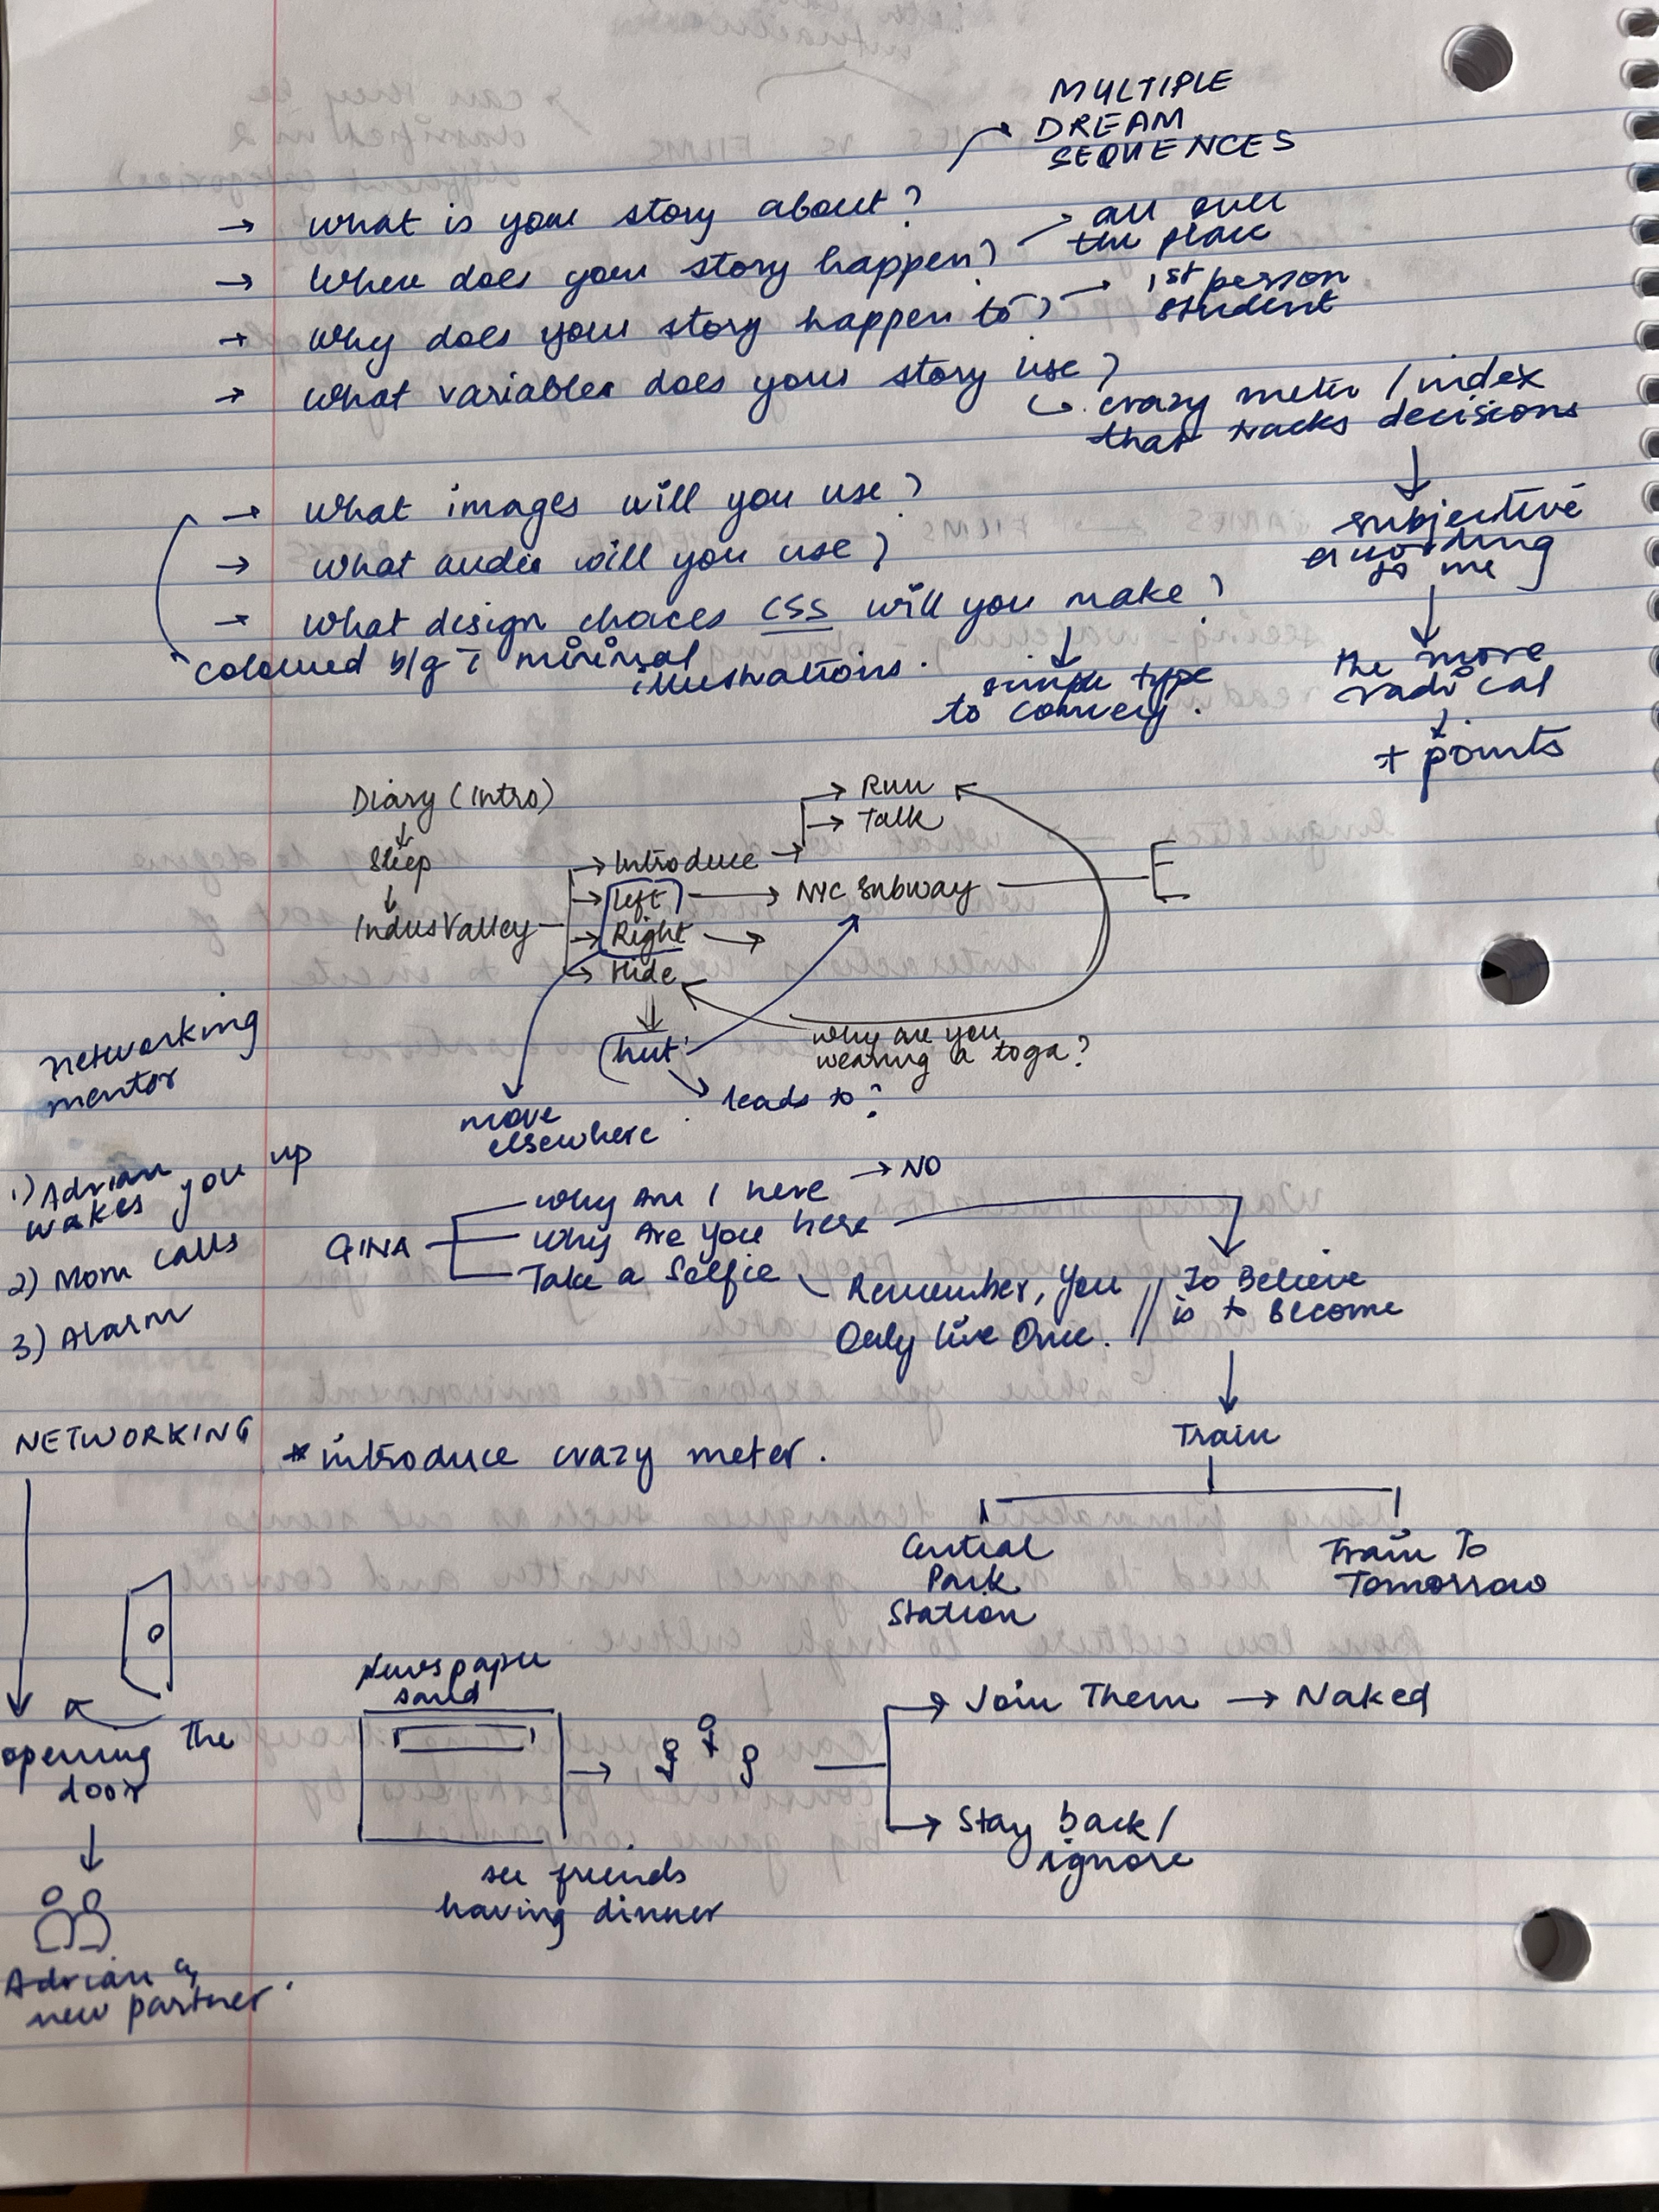 MULTIPLE
DREAM
SEQUENCES
→ What is your story about?
→ Where does your story happen?
all over
the place
→ Why does your story happen to?
1st person
student
→ What variables does your story use?
crazy meter / index
that tracks decisions
subjective
according
to me
the more
radical
+ points
→ What images will you use?
→ What audio will you use?
→ What design choices CSS will you make?
coloured b/g c̄ minimal
illustrations.
simple type
to convey.
Diary (Intro)
Sleep
Indus Valley
→ Introduce →
→ Run
→ Talk
→ left → NYC Subway
→ Right →
→ Hide
hut
why are you
wearing a toga?
leads to?
move
elsewhere
networking
mentor
1) Adrian
wakes you up
2) Mom calls
3) Alarm
GINA
Why Am I here → NO
Why Are You here
Take a Selfie
Remember, You
Only live Once. //
To Believe
is to Become
Train
Central
Park
Station
Train To
Tomorrow
NETWORKING
* introduce crazy meter.
opening the
door
Adrian &
new partner.
Newspaper
see friends
having dinner
→ Join Them → Naked
→ Stay back /
ignore